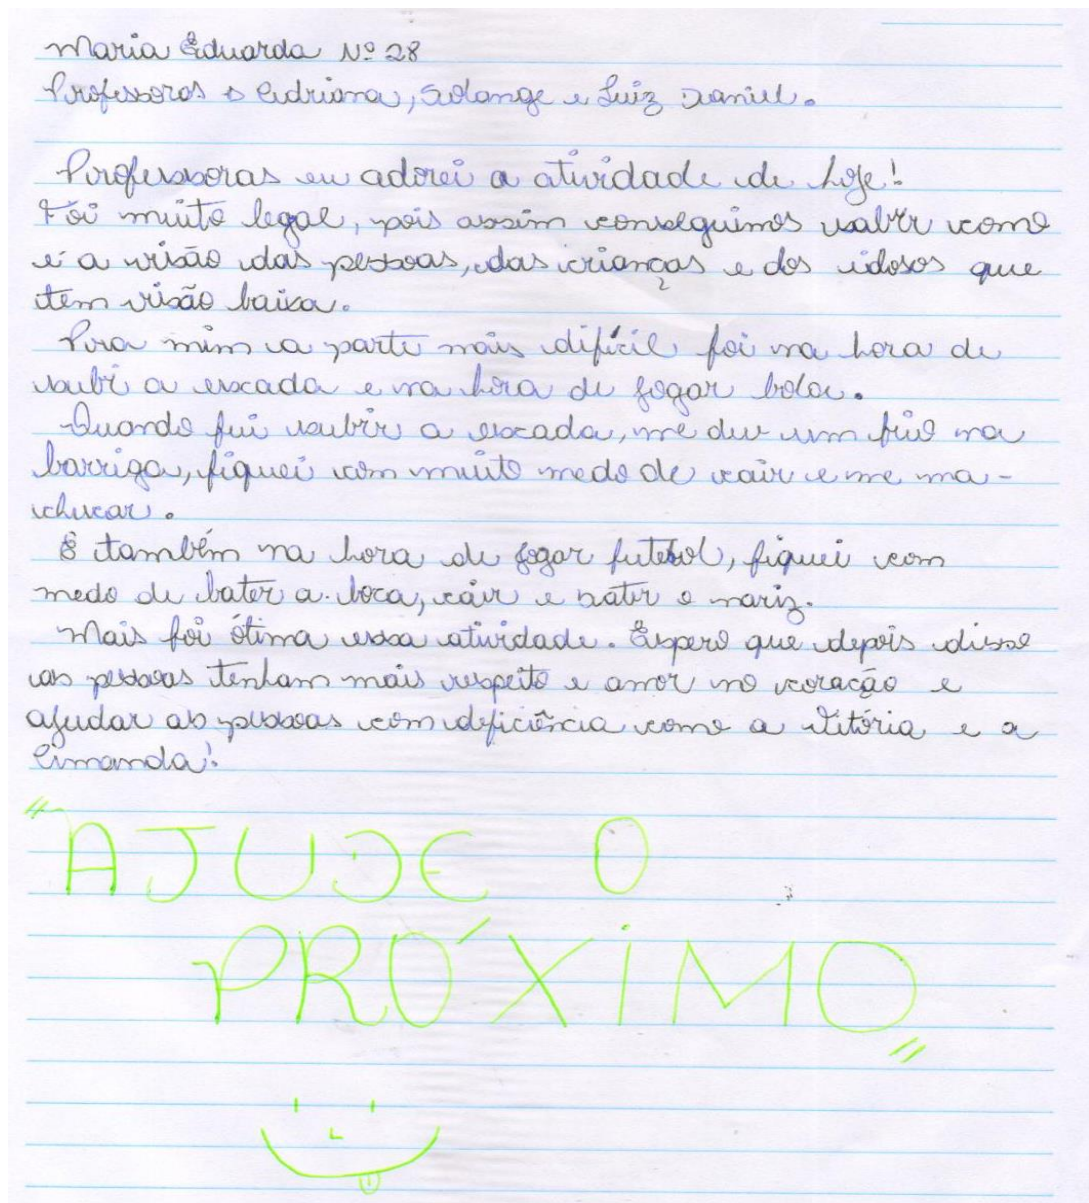 Maria Eduarda Nº 28
Professoras Adriana, Solange e Luiz Daniel.
Professoras eu adorei a atividade de hoje!
Foi muito legal, pois assim conseguimos sabtr como
é a visão das pessoas, das crianças e dos idosos que
tem visão baixa.
Pra mim a parte mais difícil foi na hora de
subi a escada e na hora de jogar bola.
Quando fui subir a escada, me deu um frio na
barriga, fiquei com muito medo de cair e me ma-
chucar.
E também na hora de jogar futebol, fiquei com
medo de bater a boca, cair e bater o nariz.
Mais foi ótima essa atividade. Espero que depois disso
as pessoas tenham mais respeito e amor no coração e
ajudar as pessoas com deficiência como a Vitória e a
Amanda!
"AJUDE O
PRÓXIMO"